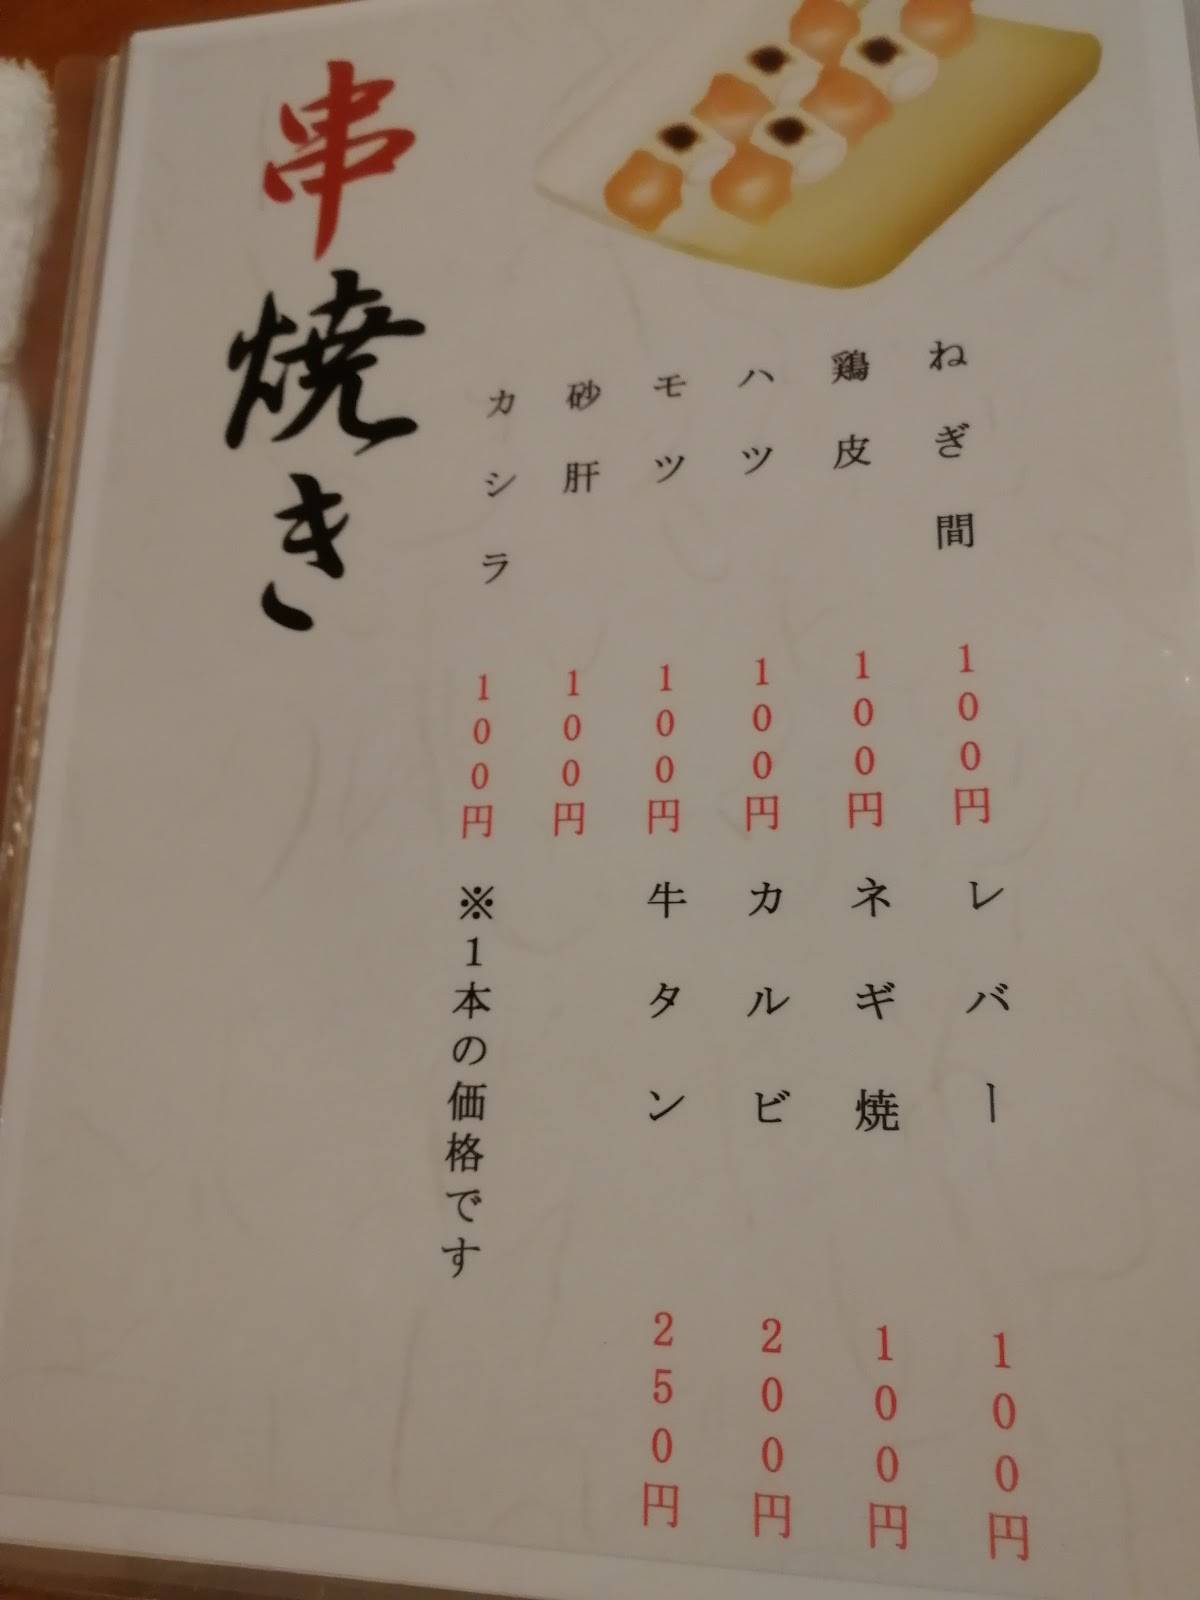 串焼き
ねぎ間 100円
鶏皮 100円
ハツ 100円
モツ 100円
砂肝 100円
カシラ 100円
レバー 100円
ネギ焼 100円
カルビ 200円
牛タン 250円
※1本の価格です